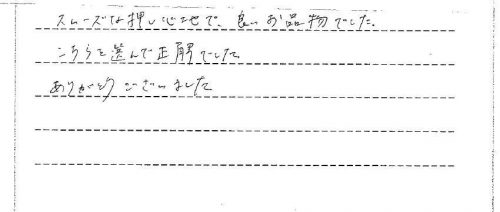 スムーズな押し心地で、良いお品物でした。
こちらを選んで正解でした
ありがとうございました